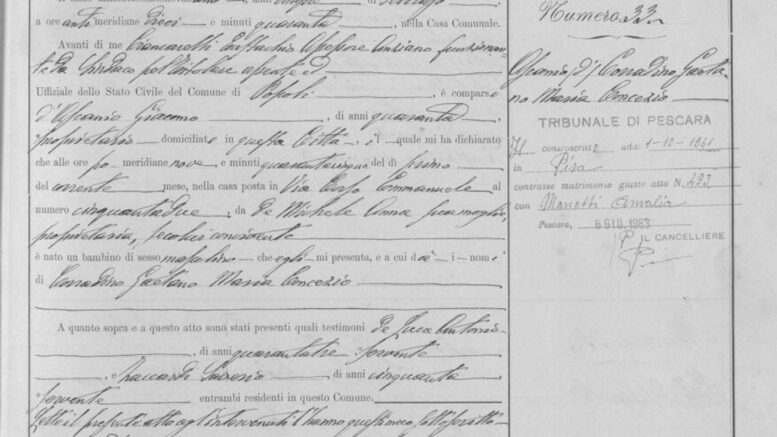 a ore antimeridiane dieci e minuti quaranta, nella Casa Comunale.
Avanti di me Giancarelli Eustachio Assessore Anziano funzionan-
te da Sindaco pel titolare assente ed
Uffiziale dello Stato Civile del Comune di Popoli, è comparso
d'Ascanio Giacomo, di anni quaranta
proprietario domiciliato in questa Città, il quale mi ha dichiarato
che alle ore pomeridiane nove e minuti quarantacinque del dì primo
del corrente mese, nella casa posta in Via Corso Emmanuele al
numero cinquantadue, da De Michele Anna sua moglie,
proprietaria, seco lui convivente
è nato un bambino di sesso mascolino che egli mi presenta, e a cui dà i nomi
di Corradino Gaetano Maria
A quanto sopra e a questo atto sono stati presenti quali testimoni De Luca Antonio
di anni quarantatre servente
, e Saverio, di anni cinquanta
servente entrambi residenti in questo Comune.
Letto il presente atto agli intervenuti l'hanno questi meco sottoscritto
Numero 33.
Corradino Gaeta-
no Maria
TRIBUNALE DI PESCARA
Il controscritto addì 1-10-1961
in Pisa
contrasse matrimonio giusto atto N. 493
con Mariotti Amalia
Pescara, 6 GIU. 1963
IL CANCELLIERE